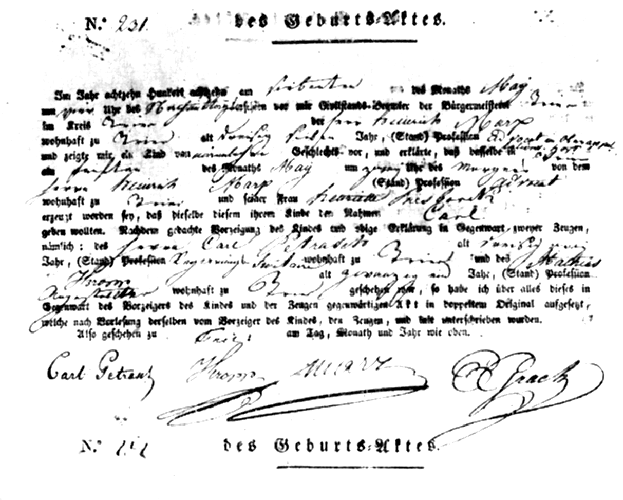 N.º 231. des Geburts-Aktes.
Im Jahr achtzehn Hundert achtzehn am siebenten des Monaths May
um vier Uhr des Nachmittags erschien vor mir Civilstands-Beamter der Bürgermeisterei Trier
im Kreis Trier der Herr Heinrich Marx
wohnhaft zu Trier alt dreisig sieben Jahr, (Stand) Profession
und zeigte mir ein Kind von männlichen Geschlechts vor, und erklärte, daß dasselbe in Trier
am fünften des Monaths May um zwey Uhr des Morgens von dem
Herrn Heinrich Marx (Stand) Profession Advocat
wohnhaft zu Trier und seiner Frau Henriette Presborck
erzeugt worden sey, daß dieselbe diesem ihrem Kinde den Nahmen Carl
geben wollten. Nachdem gedachte Vorzeigung des Kindes und obige Erklärung in Gegenwart zweyer Zeugen,
nämlich: des Herrn Carl Petrasch alt dreisig zwei
Jahr, (Stand) Profession Regierungs wohnhaft zu Trier und des Mathias
Kropp alt zwanzig ein Jahr, (Stand) Profession
wohnhaft zu Trier geschehen war, so habe ich über alles dieses in
Gegenwart des Vorzeigers des Kindes und der Zeugen gegenwärtigen Akt in doppeltem Original aufgesetzt,
welche nach Vorlesung derselben vom Vorzeiger des Kindes, den Zeugen, und mir unterschrieben wurden.
Also geschehen zu Trier am Tag, Monath und Jahr wie oben.
Carl Petrasch Kropp Marx E Grach
N.º des Geburts-Aktes.